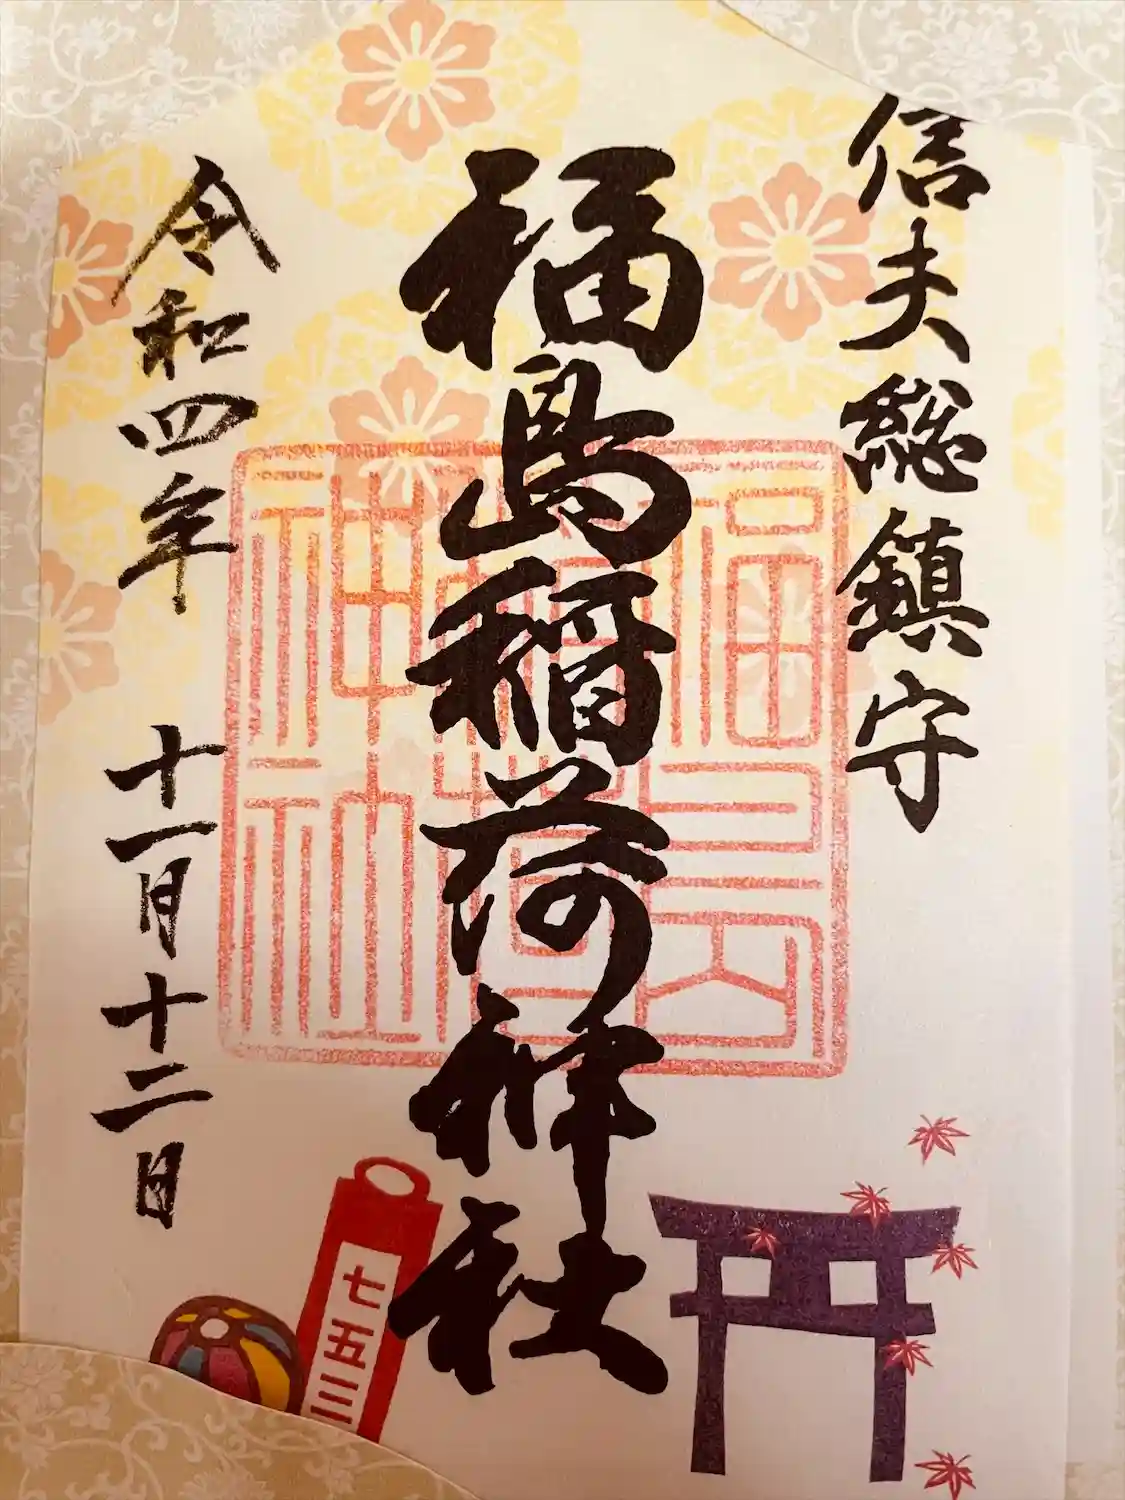 信夫総鎮守
福島稲荷神社
福島稲荷神社
令和四年
十一月十二日
七五三